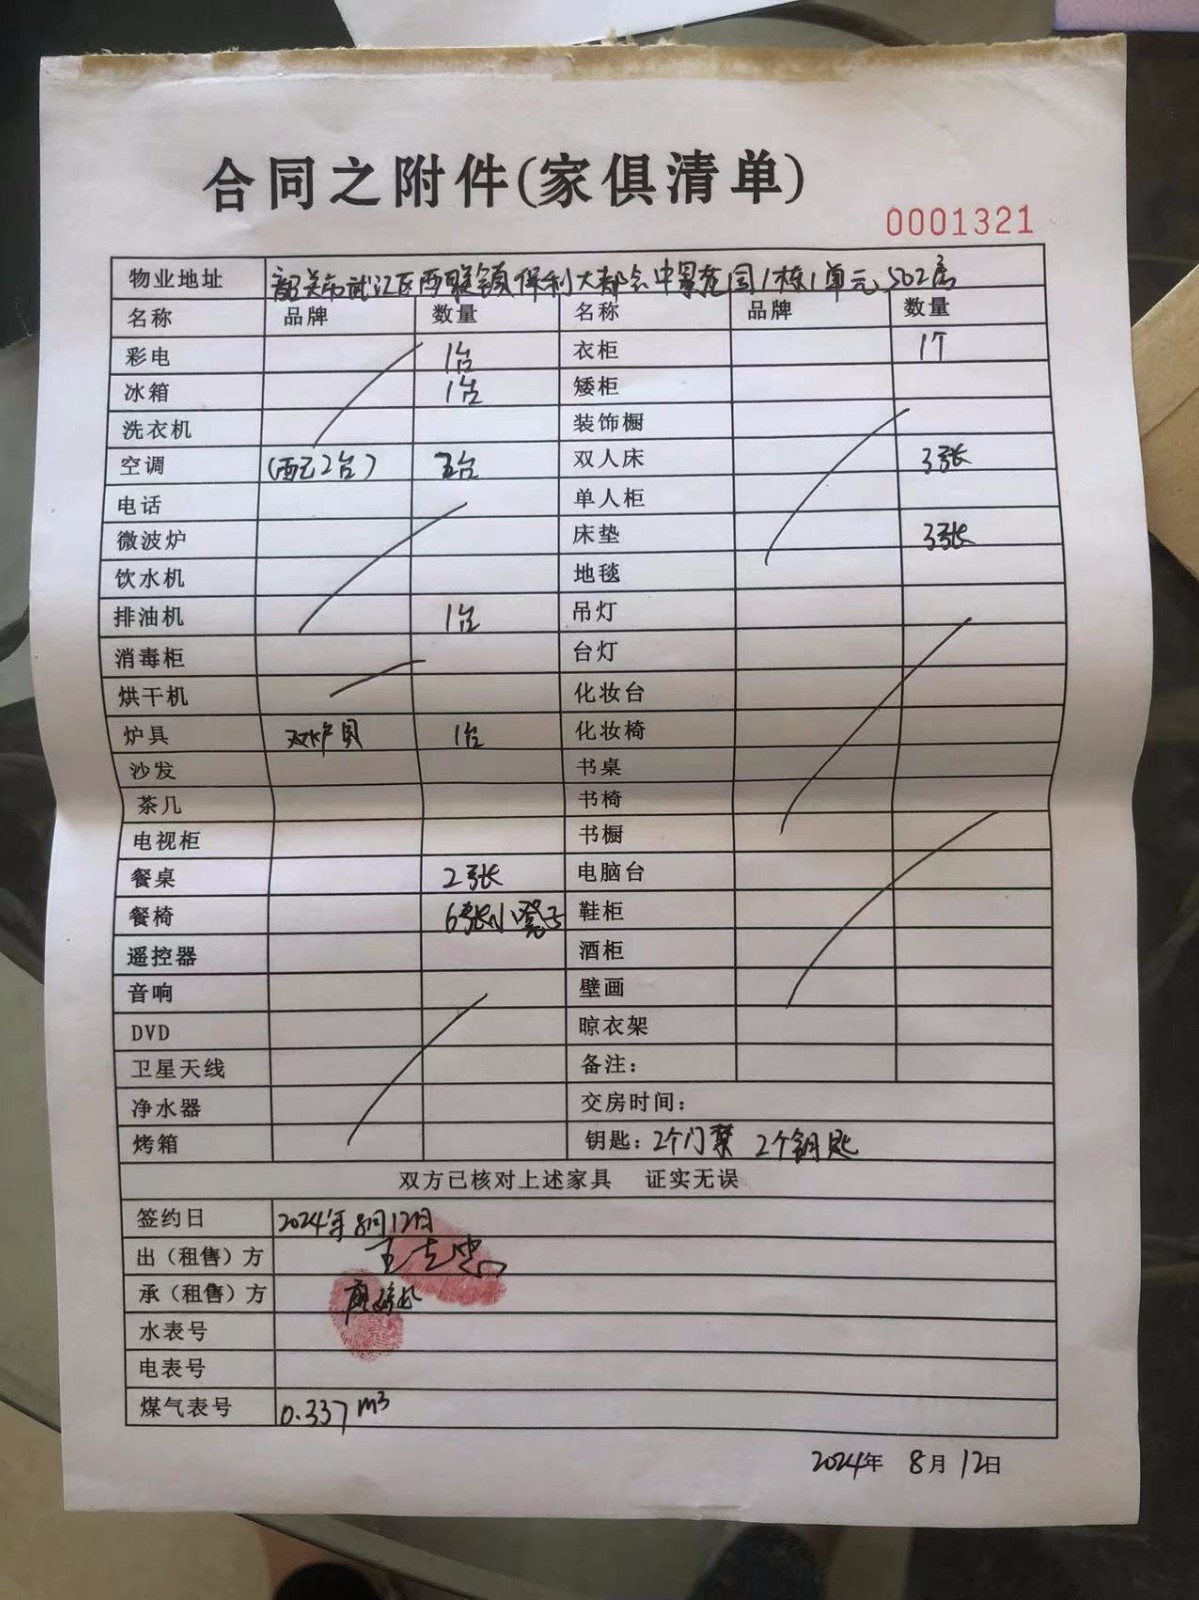 合同之附件(家俱清单)
0001321
物业地址 韶关市武江区西联镇保利大都会中景花园1栋1单元502房
名称 品牌 数量 名称 品牌 数量
彩电 1台 衣柜 1个
冰箱 1台 矮柜
洗衣机 装饰橱
空调 (配2台) 台 双人床 3张
电话 单人柜
微波炉 床垫 3张
饮水机 地毯
排油机 1台 吊灯
消毒柜 台灯
烘干机 化妆台
炉具 双炉具 1台 化妆椅
沙发 书桌
茶几 书椅
电视柜 书橱
餐桌 2张 电脑台
餐椅 6张小凳子 鞋柜
遥控器 酒柜
音响 壁画
DVD 晾衣架
卫星天线 备注：
净水器 交房时间：
烤箱 钥匙：2个门禁 2个钥匙
双方已核对上述家具 证实无误
签约日 2024年8月12日
出（租售）方
承（租售）方
水表号
电表号
煤气表号 0.337 m³
2024年 8月 12日